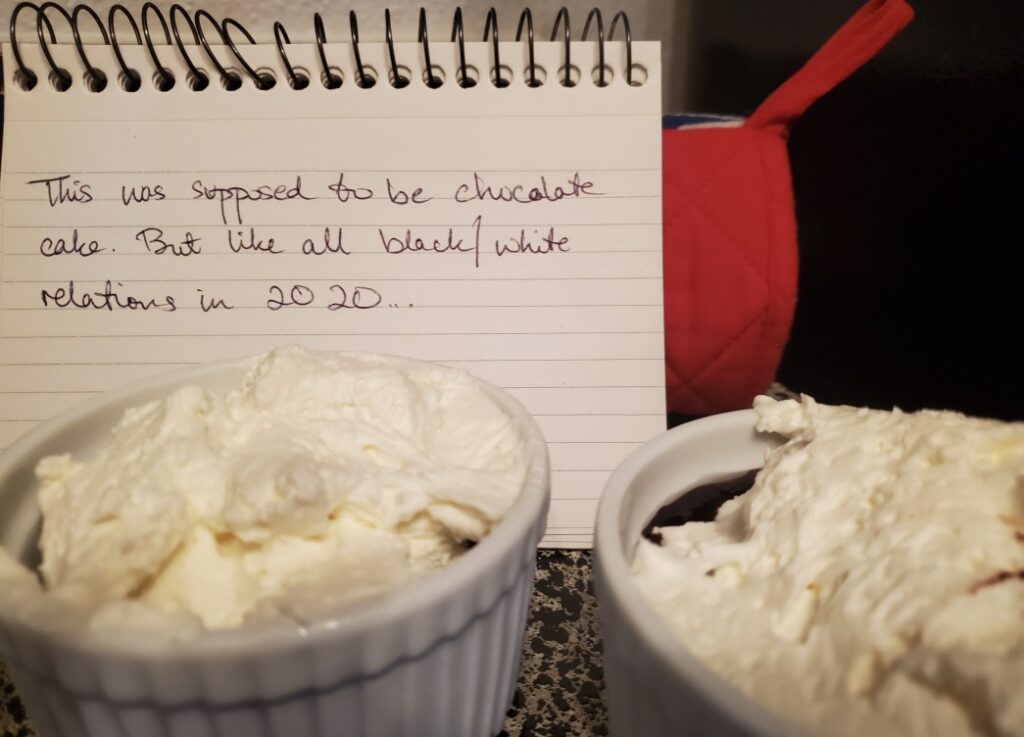 This was supposed to be chocolate
cake. But like all black/white
relations in 2020...